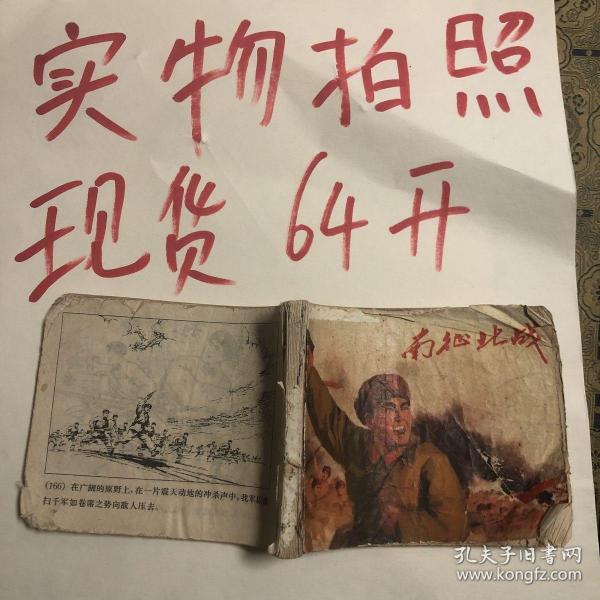 实物拍照
现货 64开
南征北战
(166) 在广阔的原野上，在一片震天动地的冲杀声中，我军以
扫千军如卷席之势向敌人压去。
孔夫子旧书网
www.kongfz.com